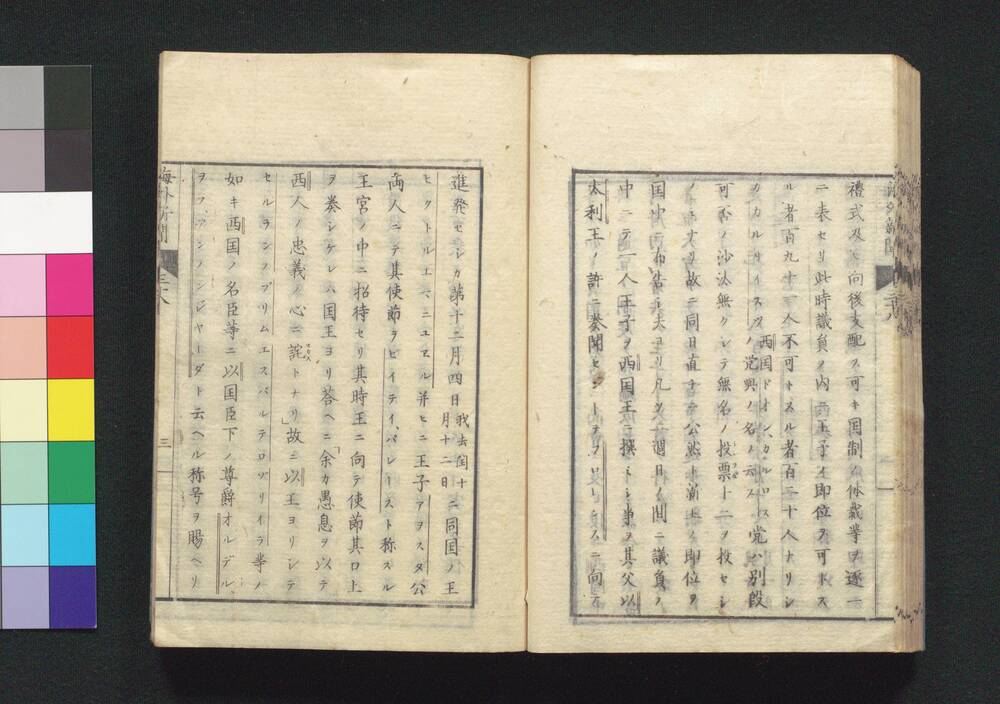 禮式及ヒ向後支配ス可キ国制ノ体裁挙ヲ逐一
ニ表セリ此時議員ノ内ニ王子ノ即位ヲ可トス
ル者百九十一人不可トスル者百二十人ナリシ
カカルリイスタ西国ドオン、カルロスノ党與ノ名ノ云ス党ハ別段
可否ノ沙汰無クシテ無名ノ投票十二ヲ投セシ
ノミナリ故ニ同日直チニ公然ト新王ノ即位ヲ
国中ニ布告シ夫ヨリ凡ソ一週日ノ間ニ議員ノ
中ニテ一人王子ヲ西国王ニ撰ミシ事ヲ其父以
太利王ノ許ニ奏聞セントテ
進発セシカ第十二月四日我去閏十月十二日ニ同国ノ王
ヒクトルエマニユエル并ヒニ王子アヲスタ公
両人ニテ其使節ヲピイテイ、パレーストト称スル
王宮ノ中ニ招待セリ其時王ニ向テ使節其口上
ヲ奏シケレハ国王ヨリ荅ヘニ「余カ愚息ヲ以テ
西人ノ忠義ノ心ニ詫マカストナリ」故ニ以王ヨリシテ
セルランスプリムエスパルテロゾリイラ挙ノ
如キ西国ノ名臣等ニ以国臣下ノ尊爵オルデル、
ヲフ、アンノンシジヤーダト云ヘル称号ヲ賜ヘリ
海外新聞
三